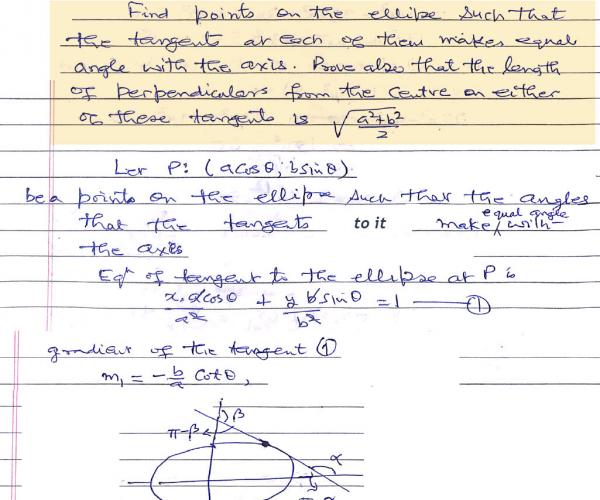 Find points on the ellipse such that
the tangents at each of them makes equal
angle with the axis. Prove also that the length
of perpendiculars from the centre on either
of these tangents is √(a²+b²)/2
Let P: (a cosθ, b sinθ)
be a points on the ellipse such that the angles
that the tangents to it make equal angle with
the axes
Eqn of tangent to the ellipse at P is
x.acosθ/a² + y bsinθ/b² = 1 —— ①
gradient of the tangent ①
m₁ = -b/a Cotθ,
β
π-β
α